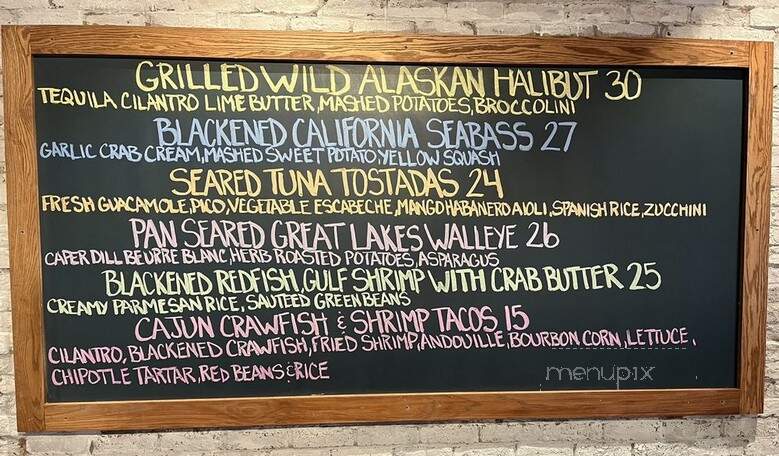 GRILLED WILD ALASKAN HALIBUT 30
TEQUILA CILANTRO LIME BUTTER, MASHED POTATOES, BROCCOLINI
BLACKENED CALIFORNIA SEABASS 27
GARLIC CRAB CREAM, MASHED SWEET POTATO, YELLOW SQUASH
SEARED TUNA TOSTADAS 24
FRESH GUACAMOLE, PICO, VEGETABLE ESCABECHE, MANGO HABANERO AIOLI, SPANISH RICE, ZUCCHINI
PAN SEARED GREAT LAKES WALLEYE 26
CAPER DILL BEURRE BLANC, HERB ROASTED POTATOES, ASPARAGUS
BLACKENED REDFISH, GULF SHRIMP WITH CRAB BUTTER 25
CREAMY PARMESAN RICE, SAUTEED GREEN BEANS
CAJUN CRAWFISH & SHRIMP TACOS 15
CILANTRO, BLACKENED CRAWFISH, FRIED SHRIMP, ANDOUILLE, BOURBON CORN, LETTUCE,
CHIPOTLE TARTAR, RED BEANS & RICE
menupix